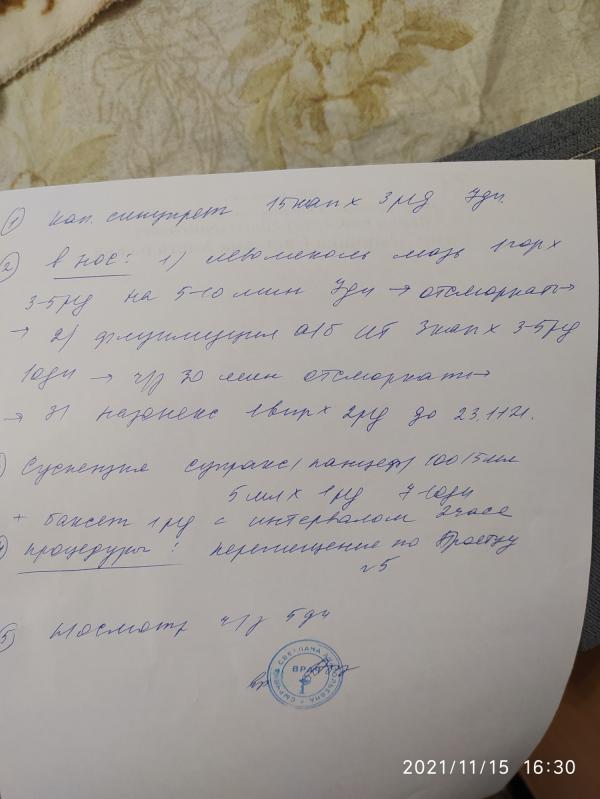 ① кап. синупрет 15 кап х 3 р/д 7дн.
② в нос: 1) левомеколь мазь 1 гор х
3-5 р/д на 5-10 мин 7дн → отсморкать →
→ 2) флуимуцил а/б ИТ 3 кап х 3-5 р/д
10дн → ч/з 30 мин отсморкать →
→ 3) назонекс 1 впр х 2 р/д до 23.11.21.
Суспензия супракс/панцеф/ 100/5мл
5 мл х 1 р/д 7-10дн
+ баксет 1 р/д с интервалом 2 часа
процедуры: перемещение по Проетцу
№5
⑤ осмотр ч/з 5 дн
СВЕТЛАНА
ВРАЧ
2021/11/15 16:30